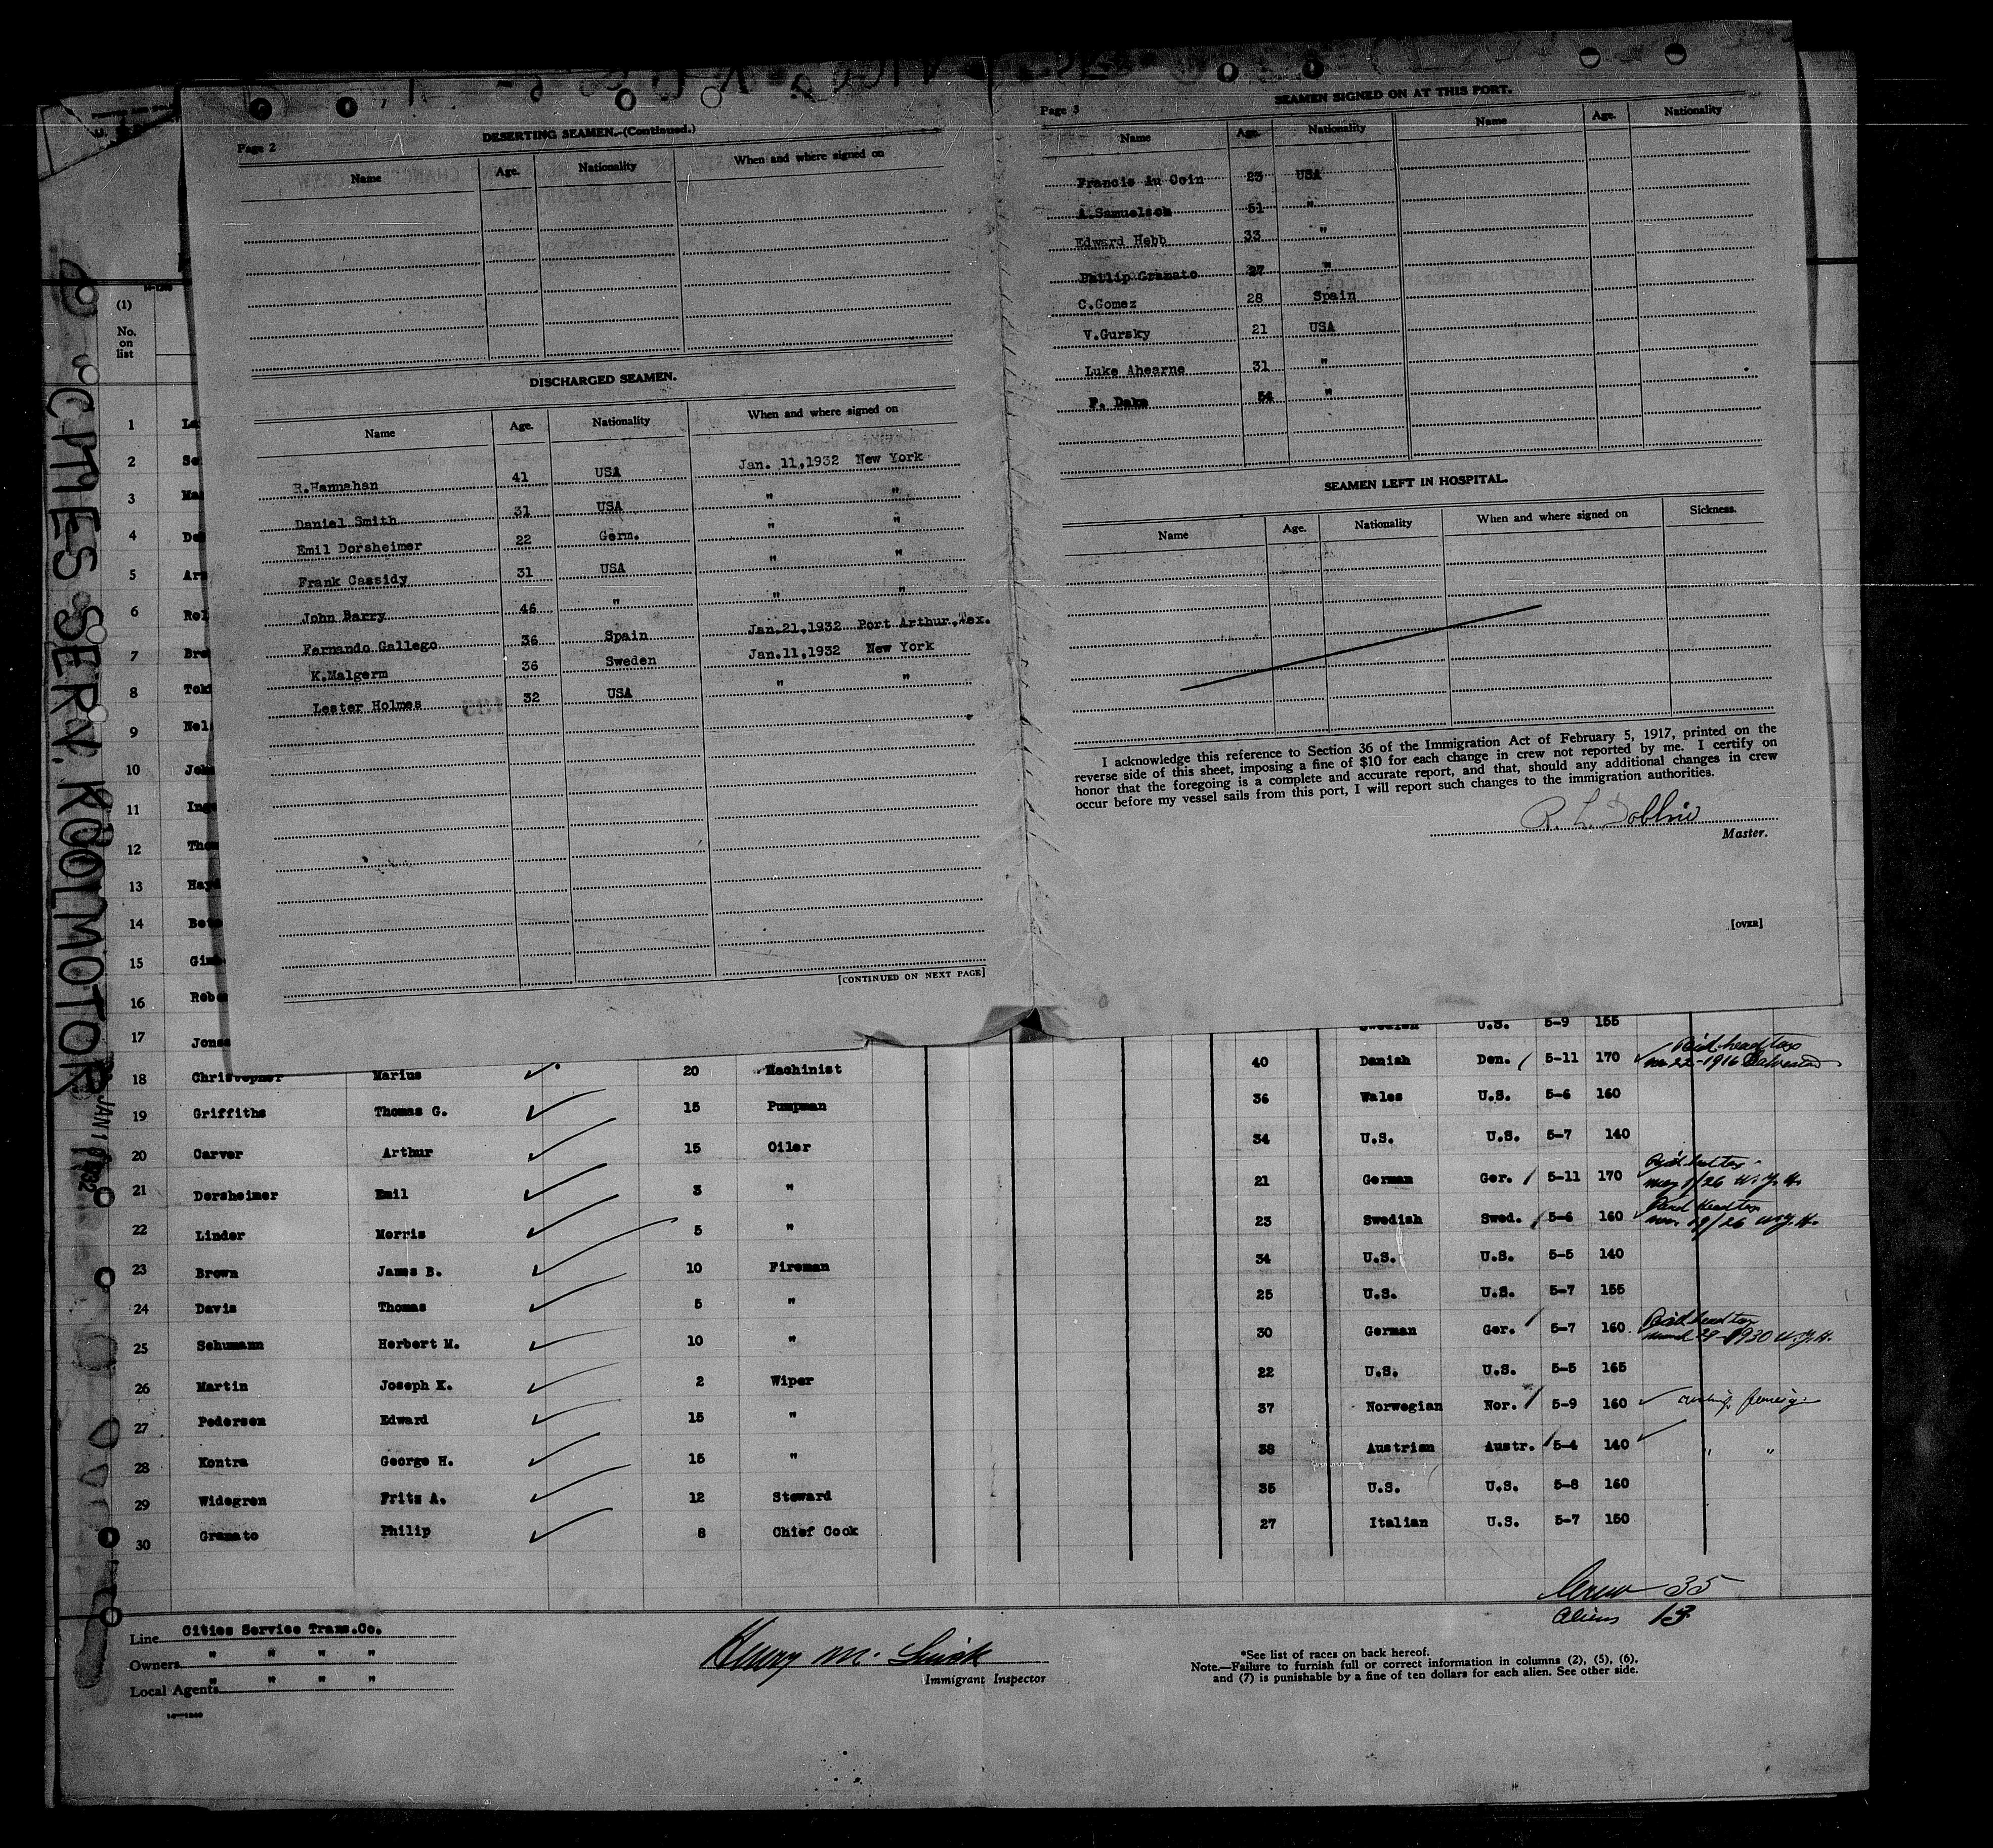 Page 2
DESERTING SEAMEN.-(Continued.)
Name Age. Nationality When and where signed on
DISCHARGED SEAMEN.
Name Age. Nationality When and where signed on
R.Hannahan 41 USA Jan. 11,1932 New York
Daniel Smith 31 USA " "
Emil Dorsheimer 22 Germ. " "
Frank Cassidy 31 USA " "
John Barry 46 " " "
Fernando Gallego 36 Spain Jan.21,1932 Port Arthur,Tex.
K.Malgerm 36 Sweden Jan.11,1932 New York
Lester Holmes 32 USA " "
[CONTINUED ON NEXT PAGE]
Page 3
SEAMEN SIGNED ON AT THIS PORT.
Name Age. Nationality Name Age. Nationality
Francis Au Coin 23 USA
A.Samuelson 51 "
Edward Hebb 33 "
Philip Granato 27 "
C.Gomez 28 Spain
V.Gursky 21 USA
Luke Ahearne 31 "
F. Dake 54 "
SEAMEN LEFT IN HOSPITAL.
Name Age. Nationality When and where signed on Sickness.
I acknowledge this reference to Section 36 of the Immigration Act of February 5, 1917, printed on the
reverse side of this sheet, imposing a fine of $10 for each change in crew not reported by me. I certify on
honor that the foregoing is a complete and accurate report, and that, should any additional changes in crew
occur before my vessel sails from this port, I will report such changes to the immigration authorities.
R. L. Dobbin
Master.
[OVER]
CITIES SERV. KOOLMOTOR
JAN 1 1932
(1)
No.
on
list
1 La
2 Se
3 Ma
4 De
5 Ar
6 Rol
7 Bre
8 Tok
9 Nel
10 John
11 Inge
12 Thom
13 Hayd
14 Bet
15 Gim
16 Rober
17 Jones Swedish U.S. 5-9 155
18 Christopher Marius 20 Machinist 40 Danish Den. 5-11 170 Paid head tax
22-1916 Galveston
19 Griffiths Thomas G. 15 Pumpman 36 Wales U.S. 5-6 160
20 Carver Arthur 15 Oiler 34 U.S. U.S. 5-7 140
21 Dorsheimer Emil 3 " 21 German Ger. 5-11 170 Paid head tax
/26 N.Y.
22 Linder Morris 5 " 23 Swedish Swed. 5-6 160 Paid head tax
/26 N.Y.
23 Brown James B. 10 Fireman 34 U.S. U.S. 5-5 140
24 Davis Thomas 5 " 25 U.S. U.S. 5-7 155
25 Schumann Herbert M. 10 " 30 German Ger. 5-7 160 Paid head tax
1930 N.Y.
26 Martin Joseph K. 2 Wiper 22 U.S. U.S. 5-5 165
27 Pedersen Edward 15 " 37 Norwegian Nor. 5-9 160 foreign
28 Kontra George H. 15 " 38 Austrian Austr. 5-4 140 " "
29 Widegren Fritz A. 12 Steward 35 U.S. U.S. 5-8 160
30 Granato Philip 8 Chief Cook 27 Italian U.S. 5-7 150
Crew 35
Aliens 13
Line Cities Service Trans.Co.
Owners " " " "
Local Agents " " " "
Immigrant Inspector
*See list of races on back hereof.
Note.—Failure to furnish full or correct information in columns (2), (5), (6),
and (7) is punishable by a fine of ten dollars for each alien. See other side.